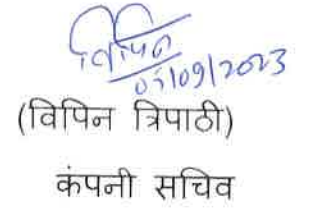 विपिन
05/09/2023
(विपिन त्रिपाठी)
कंपनी सचिव